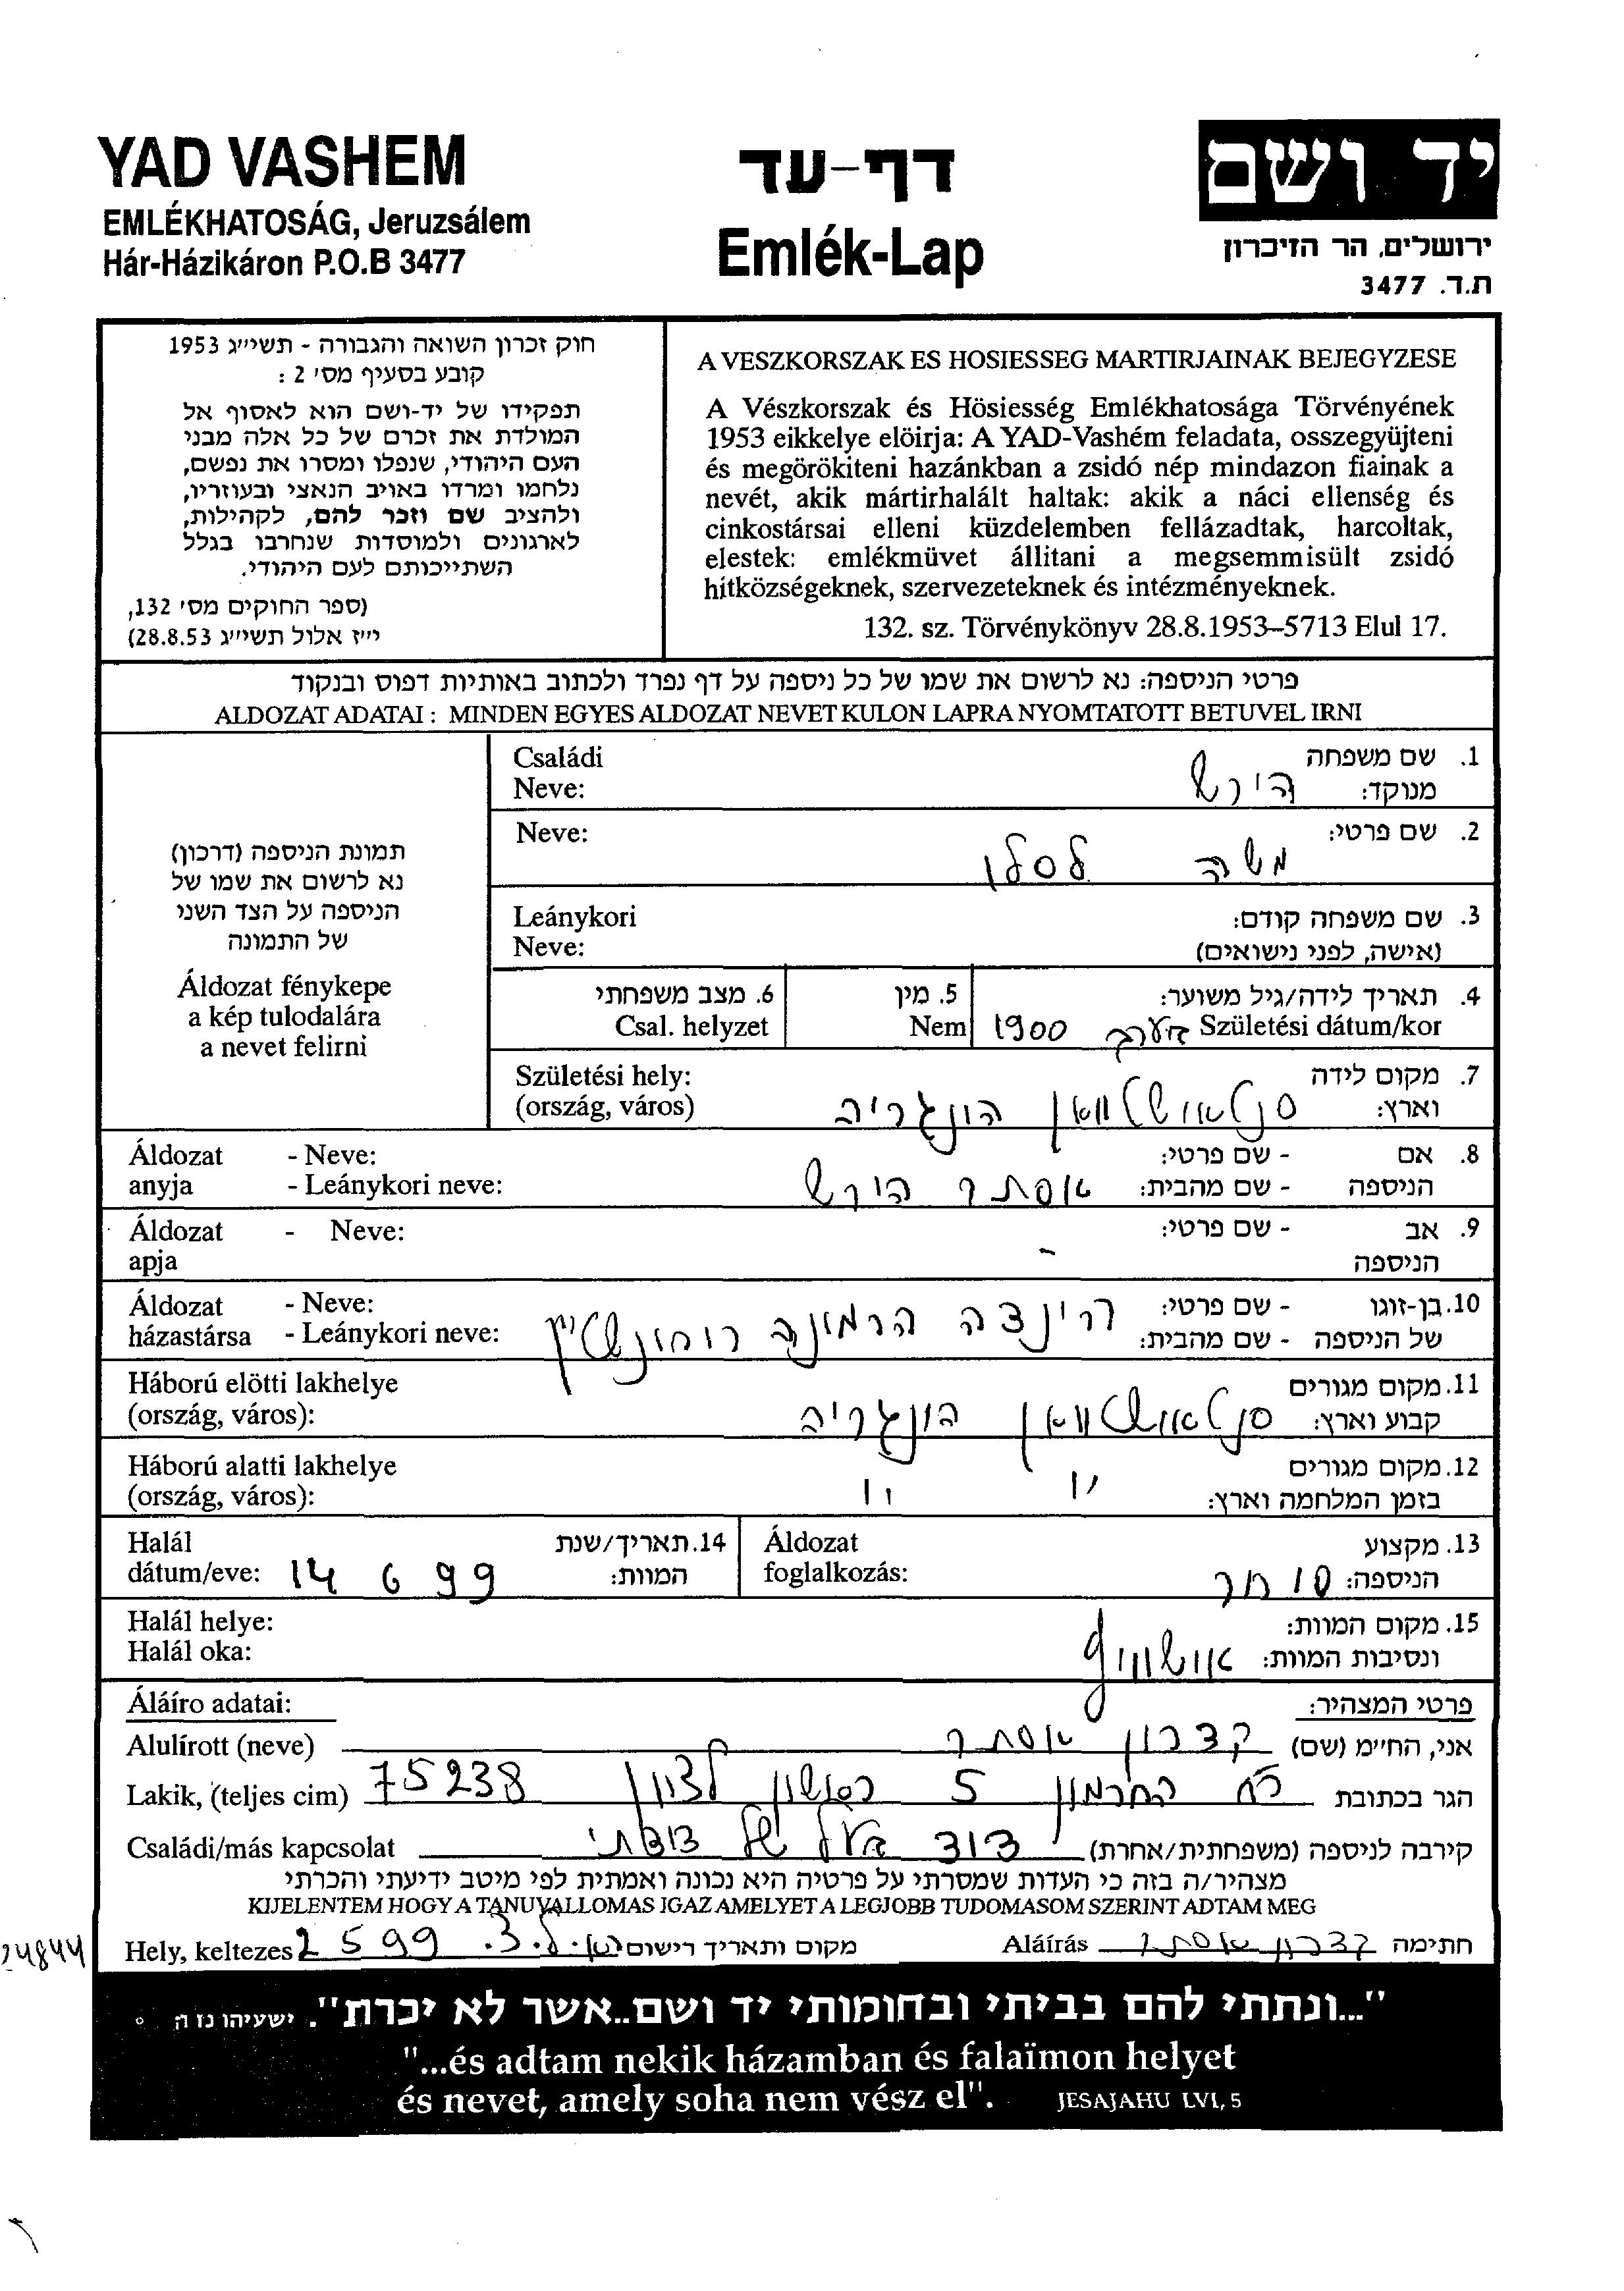 YAD VASHEM
EMLÉKHATOSÁG, Jeruzsálem
Hár-Házikáron P.O.B 3477
דף-עד
Emlék-Lap
יד ושם
ירושלים, הר הזיכרון
ת.ד. 3477
חוק זכרון השואה והגבורה - תשי״ג 1953
קובע בסעיף מס׳ 2 :
תפקידו של יד-ושם הוא לאסוף אל
המולדת את זכרם של כל אלה מבני
העם היהודי, שנפלו ומסרו את נפשם,
נלחמו ומרדו באויב הנאצי ובעוזריו,
ולהציב שם וזכר להם, לקהילות,
לארגונים ולמוסדות שנחרבו בגלל
השתייכותם לעם היהודי.
(ספר החוקים מס׳ 132,
י״ז אלול תשי״ג 28.8.53)
A VESZKORSZAK ES HOSIESSEG MARTIRJAINAK BEJEGYZESE
A Vészkorszak és Hösiesség Emlékhatosága Törvényének
1953 eikkelye elöirja: A YAD-Vashém feladata, osszegyüjteni
és megörökiteni hazánkban a zsidó nép mindazon fiainak a
nevét, akik mártirhalált haltak: akik a náci ellenség és
cinkostársai elleni küzdelemben fellázadtak, harcoltak,
elestek: emlékmüvet állitani a megsemmisült zsidó
hitközségeknek, szervezeteknek és intézményeknek.
132. sz. Törvénykönyv 28.8.1953–5713 Elul 17.
פרטי הניספה: נא לרשום את שמו של כל ניספה על דף נפרד ולכתוב באותיות דפוס ובנקוד
ALDOZAT ADATAI : MINDEN EGYES ALDOZAT NEVET KULON LAPRA NYOMTATOTT BETUVEL IRNI
תמונת הניספה (דרכון)
נא לרשום את שמו של
הניספה על הצד השני
של התמונה
Áldozat fénykepe
a kép tulodalára
a nevet felirni
1. שם משפחה
Családi
מנוקד: הירש
Neve:
2. שם פרטי: משה לסלו
Neve:
3. שם משפחה קודם:
Leánykori
(אישה, לפני נישואים)
Neve:
4. תאריך לידה/גיל משוער: 5. מין 6. מצב משפחתי
Születési dátum/kor בערך 1900 Nem Csal. helyzet
7. מקום לידה
Születési hely:
וארץ: הונגריה
(ország, város)
8. אם - שם פרטי:
Áldozat - Neve:
הניספה - שם מהבית: אסתר הירש
anyja - Leánykori neve:
9. אב - שם פרטי: -
Áldozat - Neve:
הניספה
apja
10. בן-זוגו - שם פרטי:
Áldozat - Neve:
של הניספה - שם מהבית: הרמינה
házastársa - Leánykori neve:
11. מקום מגורים
Háború elötti lakhelye
קבוע וארץ: הונגריה
(ország, város):
12. מקום מגורים
Háború alatti lakhelye
בזמן המלחמה וארץ: יי יי
(ország, város):
13. מקצוע
Áldozat
הניספה: סוחר
foglalkozás:
14. תאריך/שנת
Halál
המוות: 14 6 99
dátum/eve:
15. מקום המוות:
Halál helye:
ונסיבות המוות: אושוויץ
Halál oka:
פרטי המצהיר:
Áláíro adatai:
אני, החי״מ (שם) קצרון אסתר
Alulírott (neve)
הגר בכתובת רח החרמון 5 ראשון לציון 75238
Lakik, (teljes cim)
קירבה לניספה (משפחתית/אחרת) דוד בעל של דודתי
Családi/más kapcsolat
מצהיר/ה בזה כי העדות שמסרתי על פרטיה היא נכונה ואמתית לפי מיטב ידיעתי והכרתי
KIJELENTEM HOGY A TANUVALLOMAS IGAZ AMELYET A LEGJOBB TUDOMASOM SZERINT ADTAM MEG
חתימה קצרון אסתר Aláírás מקום ותאריך רישום ראש.ל.צ. 2 5 99 Hely, keltezes
24844
"...ונתתי להם בביתי ובחומותי יד ושם..אשר לא יכרת". ישעיהו נז ה
"...és adtam nekik házamban és falaïmon helyet
és nevet, amely soha nem vész el". JESAJAHU LVI, 5